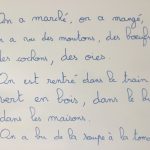 On a marché, on a mangé,
on a vu des moutons, des bœufs
des cochons, des oies.
On est rentré dans le train
vert en bois, dans le bu
dans les maisons.
On a bu de la soupe à la toma